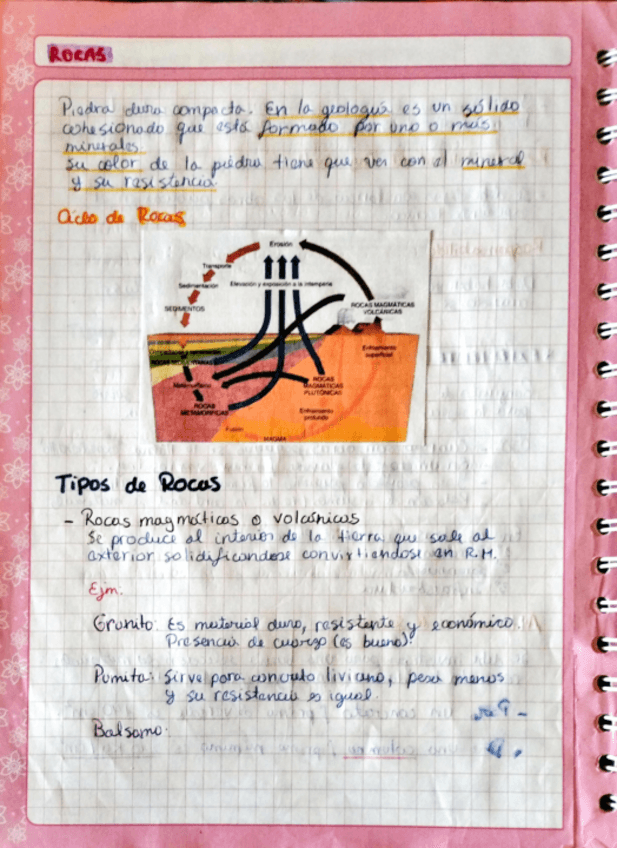 ROCAS
Piedra dura compacta. En la geología es un sólido
cohesionado que está formado por uno o más
minerales.
Su color de la piedra tiene que ver con el mineral
y su resistencia.
Ciclo de Rocas
Erosión
Transporte
Sedimentación
Elevación y exposición a la intemperie
SEDIMENTOS
ROCAS MAGMÁTICAS
VOLCÁNICAS
Enfriamiento
superficial
ROCAS SEDIMENTARIAS
Metamorfismo
ROCAS
MAGMÁTICAS
PLUTÓNICAS
ROCAS
METAMÓRFICAS
Enfriamiento
profundo
Fusión
MAGMA
Tipos de Rocas
- Rocas magmáticas o volcánicas
Se produce al interior de la tierra que sale al
exterior solidificandose convirtiendose en R.M.
Ejm.
Granito: Es material duro, resistente y económico.
Presencia de cuarzo (es bueno).
Pomita: Sirve para concreto liviano, pesa menos
y su resistencia es igual.
Balsamo.